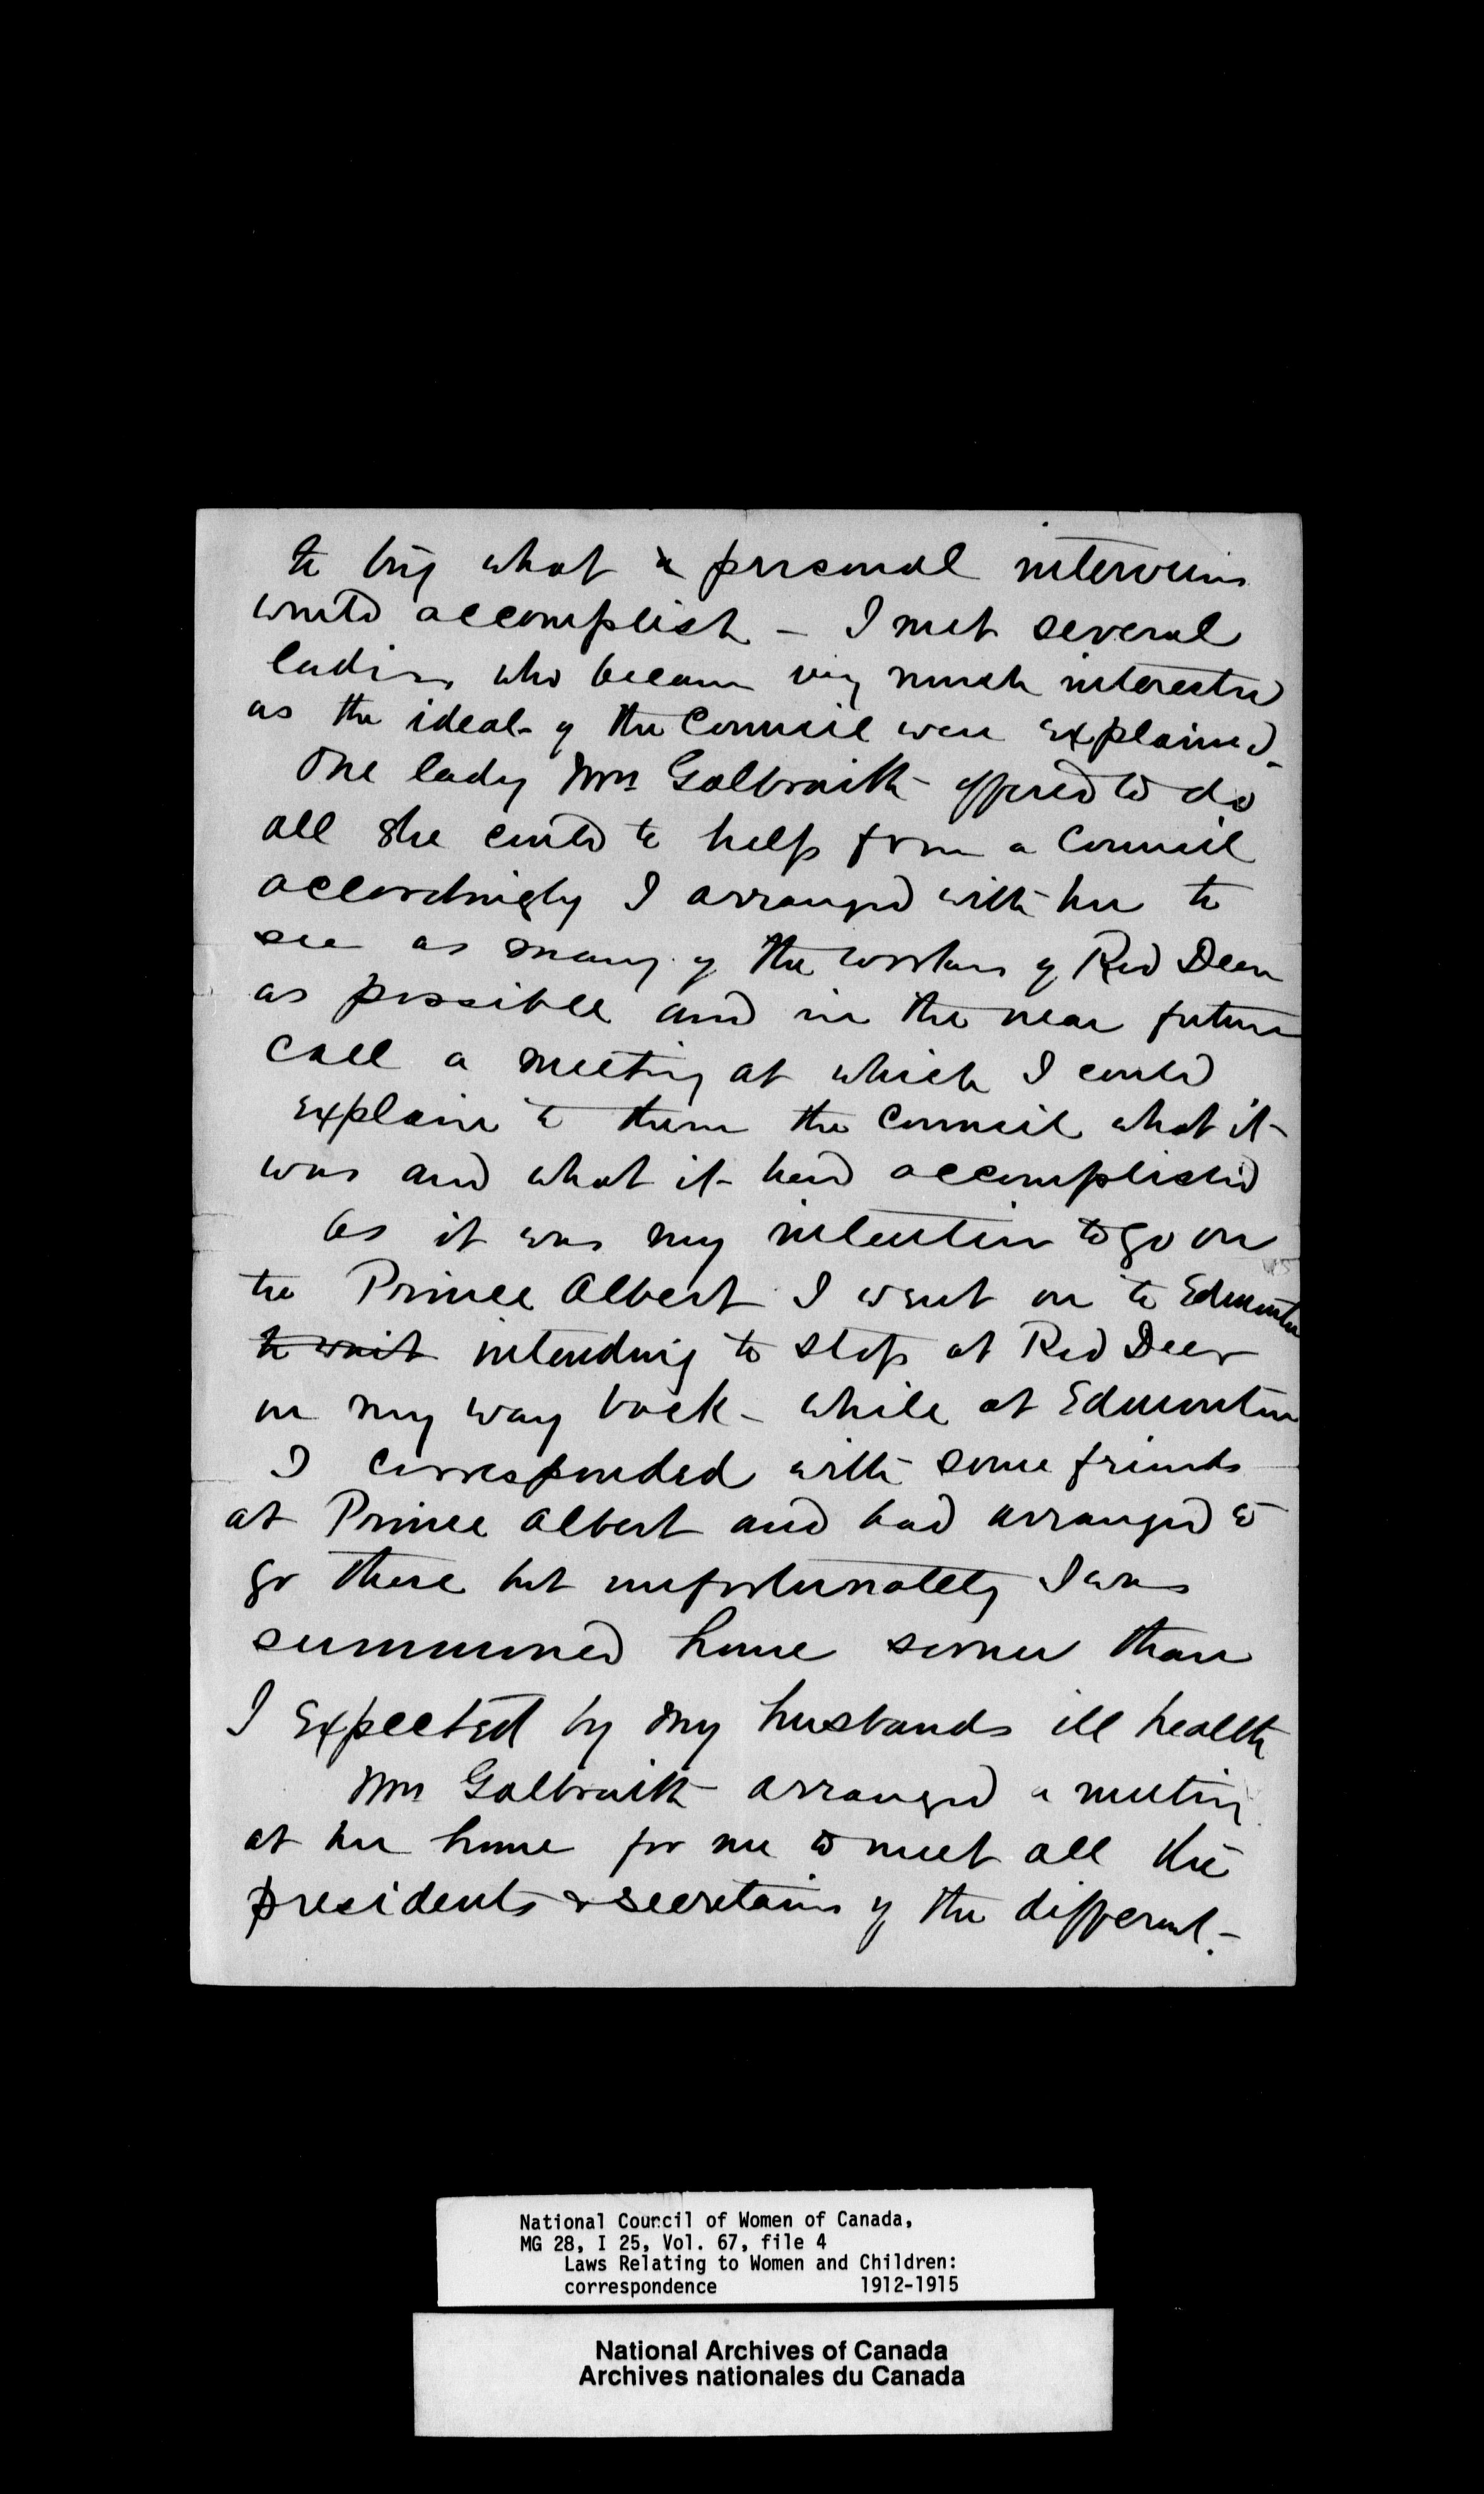 to try what a personal interview
would accomplish - I met several
ladies who became very much interested
as the ideals of the Council were explained -
One lady Mrs Galbraith offered to do
all she could to help form a Council
accordingly I arranged with her to
see as many of the workers of Red Deer
as possible and in the near future
call a meeting at which I could
explain to them the Council what it
was and what it had accomplished
As it was my intention to go on
to Prince Albert I went on to Edmonton
to wait intending to stop at Red Deer
on my way back - while at Edmonton
I corresponded with some friends
at Prince Albert and had arranged to
go there but unfortunately I was
summoned home sooner than
I expected by my husbands ill health
Mrs Galbraith arranged a meeting
at her home for me to meet all the
presidents & secretaries of the different -
National Council of Women of Canada,
MG 28, I 25, Vol. 67, file 4
Laws Relating to Women and Children:
correspondence 1912-1915
National Archives of Canada
Archives nationales du Canada